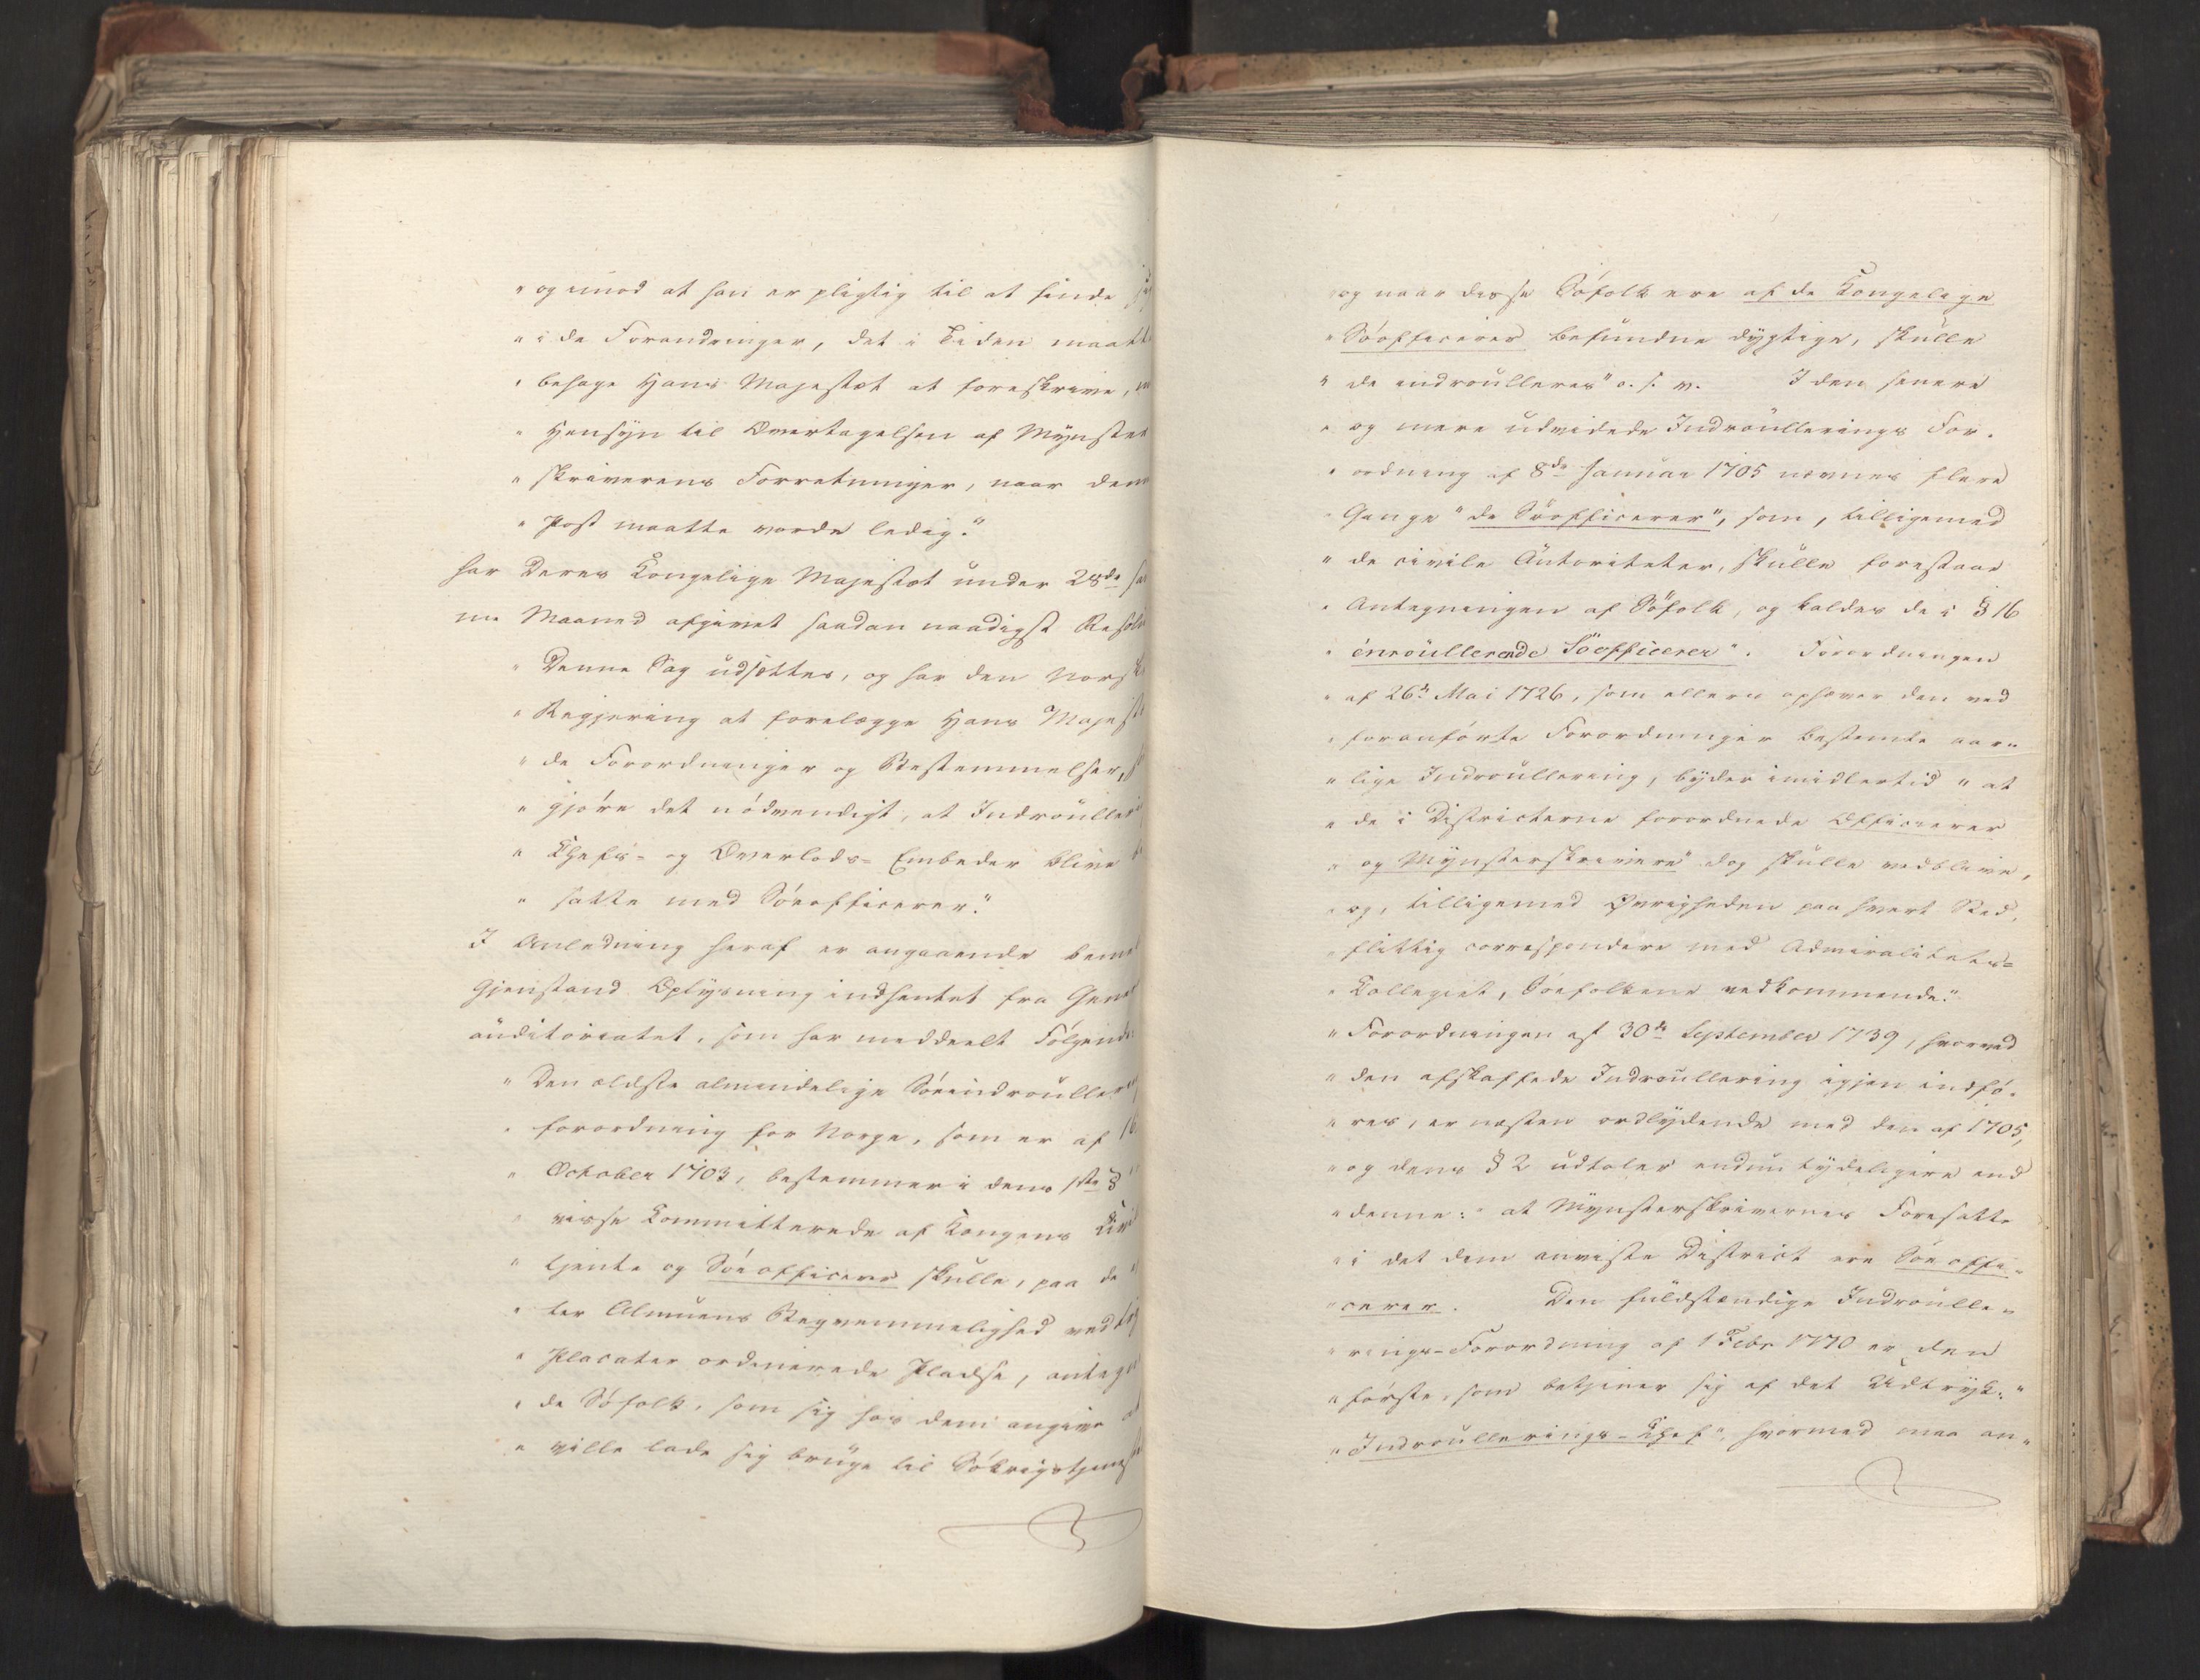 "og imod at han er pligtig til at finde sig
"i de Forandringer, det i Tiden maatte
"behage Hans Majestæt at foreskrive, m
"Hensyn til Overtagelsen af Mynster
"skriverens Forretninger, naar denn
"Post maatte vorde ledig."
har Deres Kongelige Majestæt under 28de sa
me Maaned afgivet saadan naadigst Resolu
"Denne Sag udsættes, og har den Norsk
"Regjering at forelægge Hans Majestæ
"de Forordninger og Bestemmelser, s
"gjøre det nødvendigt, at Indroulleri
"Chefs- og Overlods-Embeder blive be
"satte med Søeofficerer."
I Anledning heraf er angaaende bemel
Gjenstand Oplysning indhentet fra Genera
auditoriatet, som har meddeelt Følgende:
"Den ældste almindelige Søeindroullering
"forordning for Norge, som er af 16
"October 1703, bestemmer i dens 1ste §
"visse Committerede af Kongens Civil
"tjente og Søeofficerer skulle, paa de ef
"ter Almuens Beqvemmelighed ved
"Placater ordinerede Pladse, antegn
"de Søfolk, som sig hos dem angive at
"ville lade sig bruge til Søkrigstjenest
"og naar disse Søfolk ere af de Kongelige
"Søofficerer befundne dygtige, skulle
"de indroulleres" o. s. v. I den senere
"og mere udvidede Indroullerings For-
"ordning af 8de Januar 1705 nævnes flere
"Gange "de Søofficerer", som, tilligemed
"de civile Autoriteter, skulle forestaae
"Antegningen af Søfolk, og kaldes de i § 16
"enroullerende Søofficerer". Forordningen
"af 26de Mai 1726, som ellers ophæver den ved
"foranførte Forordninger bestemte aar-
"lige Indroullering, byder imidlertid "at
"de i Districterne forordnede Officierer
"og Mynsterskrivere" dog skulle vedblive,
"og, tilligemed Øvrigheden paa hvert Sted,
"flittig correspondere med Admiralitets-
"Collegiet, Søefolkene vedkommende."
"Forordningen af 30te September 1739, hvorved
"den afskaffede Indroullering igjen indfø-
"res, er næsten ordlydende med den af 1705,
"og dens § 2 udtaler endnu tydeligere end
"denne: at Mynsterskrivernes Foresatte
"i det dem anviste District ere Søeoffi-
"cerer. Den fuldstændige Indroulle-
"rings-Forordning af 1 Febr 1770 er den
"første, som betjener sig af det Udtryk: "
"Indroullerings-Chef", hvormed maa an-